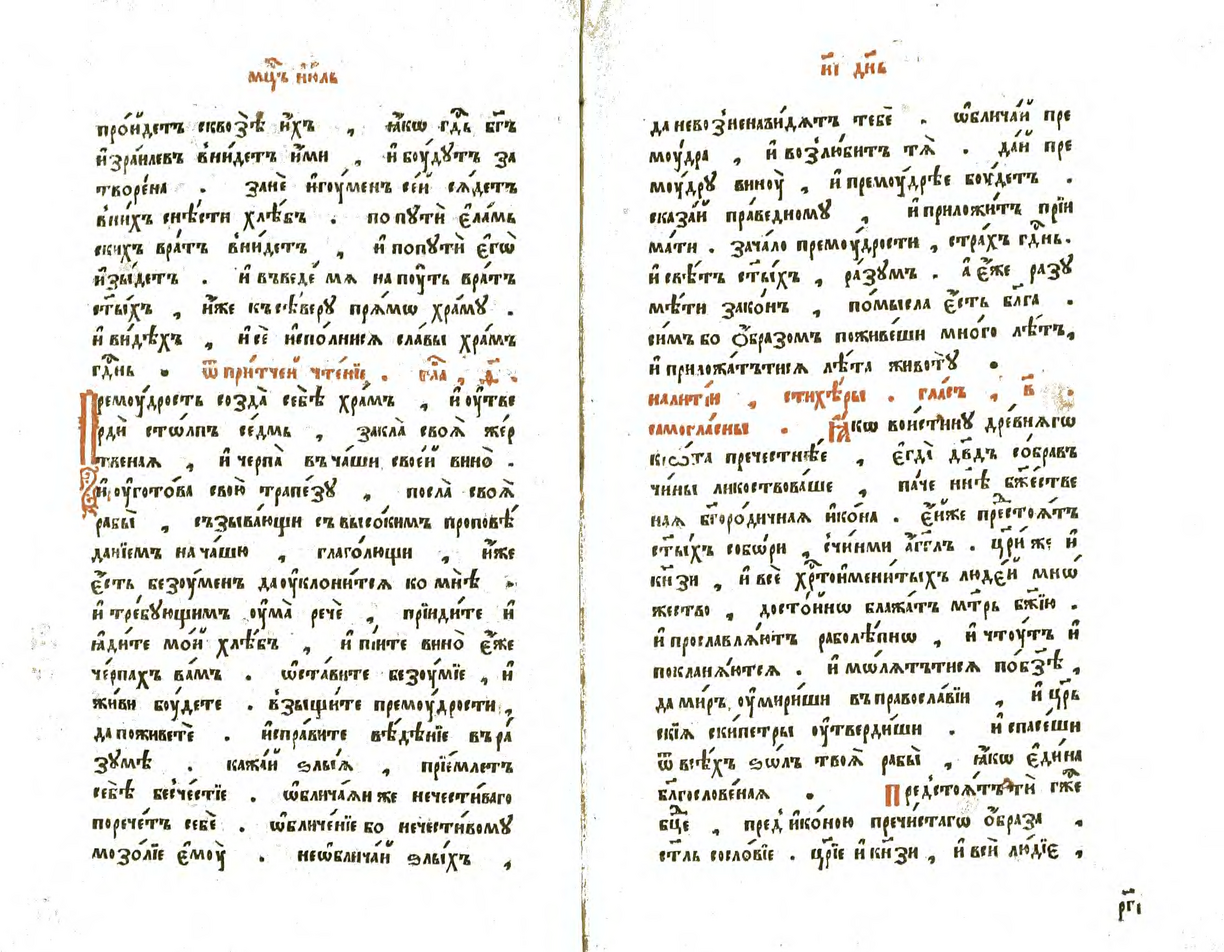 мцⷭ҇ъ і҆ю҆́ль
про́йдетъ сквозѣ̀ и҆́хъ , ꙗ҆́кѡ гдⷭ҇ь бг҃ъ
і҆зра́илевъ вни́детъ и҆́ми , и҆ бꙋ́дꙋтъ за
творе́на . занѐ и҆гꙋ́менъ се́й сѧ́детъ
вни́хъ снѣ́сти хлѣ́бъ . по пꙋтѝ є҆ла́мь
скихъ вра́тъ вни́детъ , и҆ по пꙋтѝ є҆гѡ̀
и҆зы́детъ . и҆ въведе́ мѧ на пꙋ́ть вра́тъ
ст҃ы́хъ , и҆́же къ сѣ́верꙋ прѧ́мѡ хра́мꙋ .
и҆ ви́дѣхъ , и҆ сѐ и҆спо́лнисѧ сла́вы хра́мъ
гдⷭ҇нь . ѿ при́тчей чте́нїе . гла҃ , д҃ .
Премꙋ́дрость созда̀ себѣ̀ хра́мъ , и҆ ᲂу҆тве
рдѝ сто́лпъ се́дмь , закла̀ своѧ̀ же́р
твеная , и҆ черпа̀ въ ча́ши свое́й вино̀ .
и҆ ᲂу҆гото́ва свою̀ трапе́зꙋ , посла̀ своѧ̀
рабы̀ , съзыва́ющи съ высо́кимъ проповѣ́
данїемъ на ча́шю , глаго́лющи , и҆́же
є҆́сть безꙋ́менъ да ᲂу҆клони́тсѧ ко мнѣ̀ .
и҆ тре́бꙋющимъ ᲂу҆ма̀ речѐ , прїиди́те и҆
ꙗ҆ди́те мо́й хлѣ́бъ , и҆ пі́йте вино̀ є҆́же
че́рпахъ ва́мъ . ѡ҆ста́вите безꙋ́мїе , и҆
жи́ви бꙋ́дете . взыщи́те премꙋ́дрости ,
да поживетѐ . и҆спра́вите вѣ́дѣнїе въ ра́
зꙋмѣ . кажа́й ѕлы́ѧ , прїе́млетъ
себѣ̀ бесче́стїе . ѡ҆блича́ѧй же нечести́ваго
порече́тъ себѐ . ѡ҆бличе́нїе бо нечести́вомꙋ
мозо́лїе є҆мꙋ̀ . не ѡ҆блича́й ѕлы́хъ ,
и҃і дн҃ь
да не возненави́дѧтъ тебѐ . ѡ҆блича́й пре
мꙋ́дра , и҆ возлю́битъ тѧ̀ . да́й пре
мꙋ́дрꙋ винꙋ̀ , и҆ премꙋ́дрѣе бꙋ́детъ .
сказа́й пра́ведномꙋ , и҆ приложи́тъ прїи
ма́ти . зача́ло премꙋ́дрости , стра́хъ гдⷭ҇нь .
и҆ свѣ́тъ ст҃ы́хъ , ра́зꙋмъ . а҆ є҆́же разꙋ
мѣ́ти зако́нъ , по́мысла є҆́сть бл҃га .
си́мъ бо ѻ҆́бразомъ поживе́ши мно́го лѣ́тъ ,
и҆ приложа́тътисѧ лѣ́та животꙋ̀ .
на литі́и , стихѣ́ры . гла́съ , в҃ .
самогла́сны . Ꙗ҆́кѡ вои́стинꙋ дре́внѧгѡ
кѡ́та пречестнѣ́е , є҆гда̀ дв҃дъ собра́въ
чи́ны ликоствова́ше , па́че нн҃ѣ бж҃е́стве
ная бг҃оро́дичная и҆ко́на . є҆́йже престоѧ́тъ
ст҃ы́хъ собо́ри , с чи́нми а҆́гг҃лъ . цр҃и́ же и҆
кн҃зи , и҆ всѐ хрⷭ҇тоимени́тыхъ люде́й мнѡ́
жество , досто́йнѡ блажа́тъ мт҃рь бж҃їю .
и҆ прославлѧ́ютъ раболѣ́пнѡ , и҆ чтꙋ́тъ и҆
покланѧ́ютсѧ . и҆ мо́лѧтътисѧ по бз҃ѣ ,
да ми́ръ ᲂу҆мири́ши въ правосла́вїи , и҆ црⷭ҇
скїѧ ски́петры ᲂу҆тверди́ши . и҆ спасе́ши
ѿ всѣ́хъ ѕо́лъ твоѧ̀ рабы̀ , ꙗ҆́кѡ є҆ди́на
бл҃гослове́ная . Предстоѧ́тъ тѝ гж҃е
бц҃е , пред и҆ко́ною пречи́стагѡ ѻ҆́браза .
ст҃ль сосло́вїе . цр҃їе и҆ кн҃зи , и҆ всѝ лю́дїе ,
рг҃і